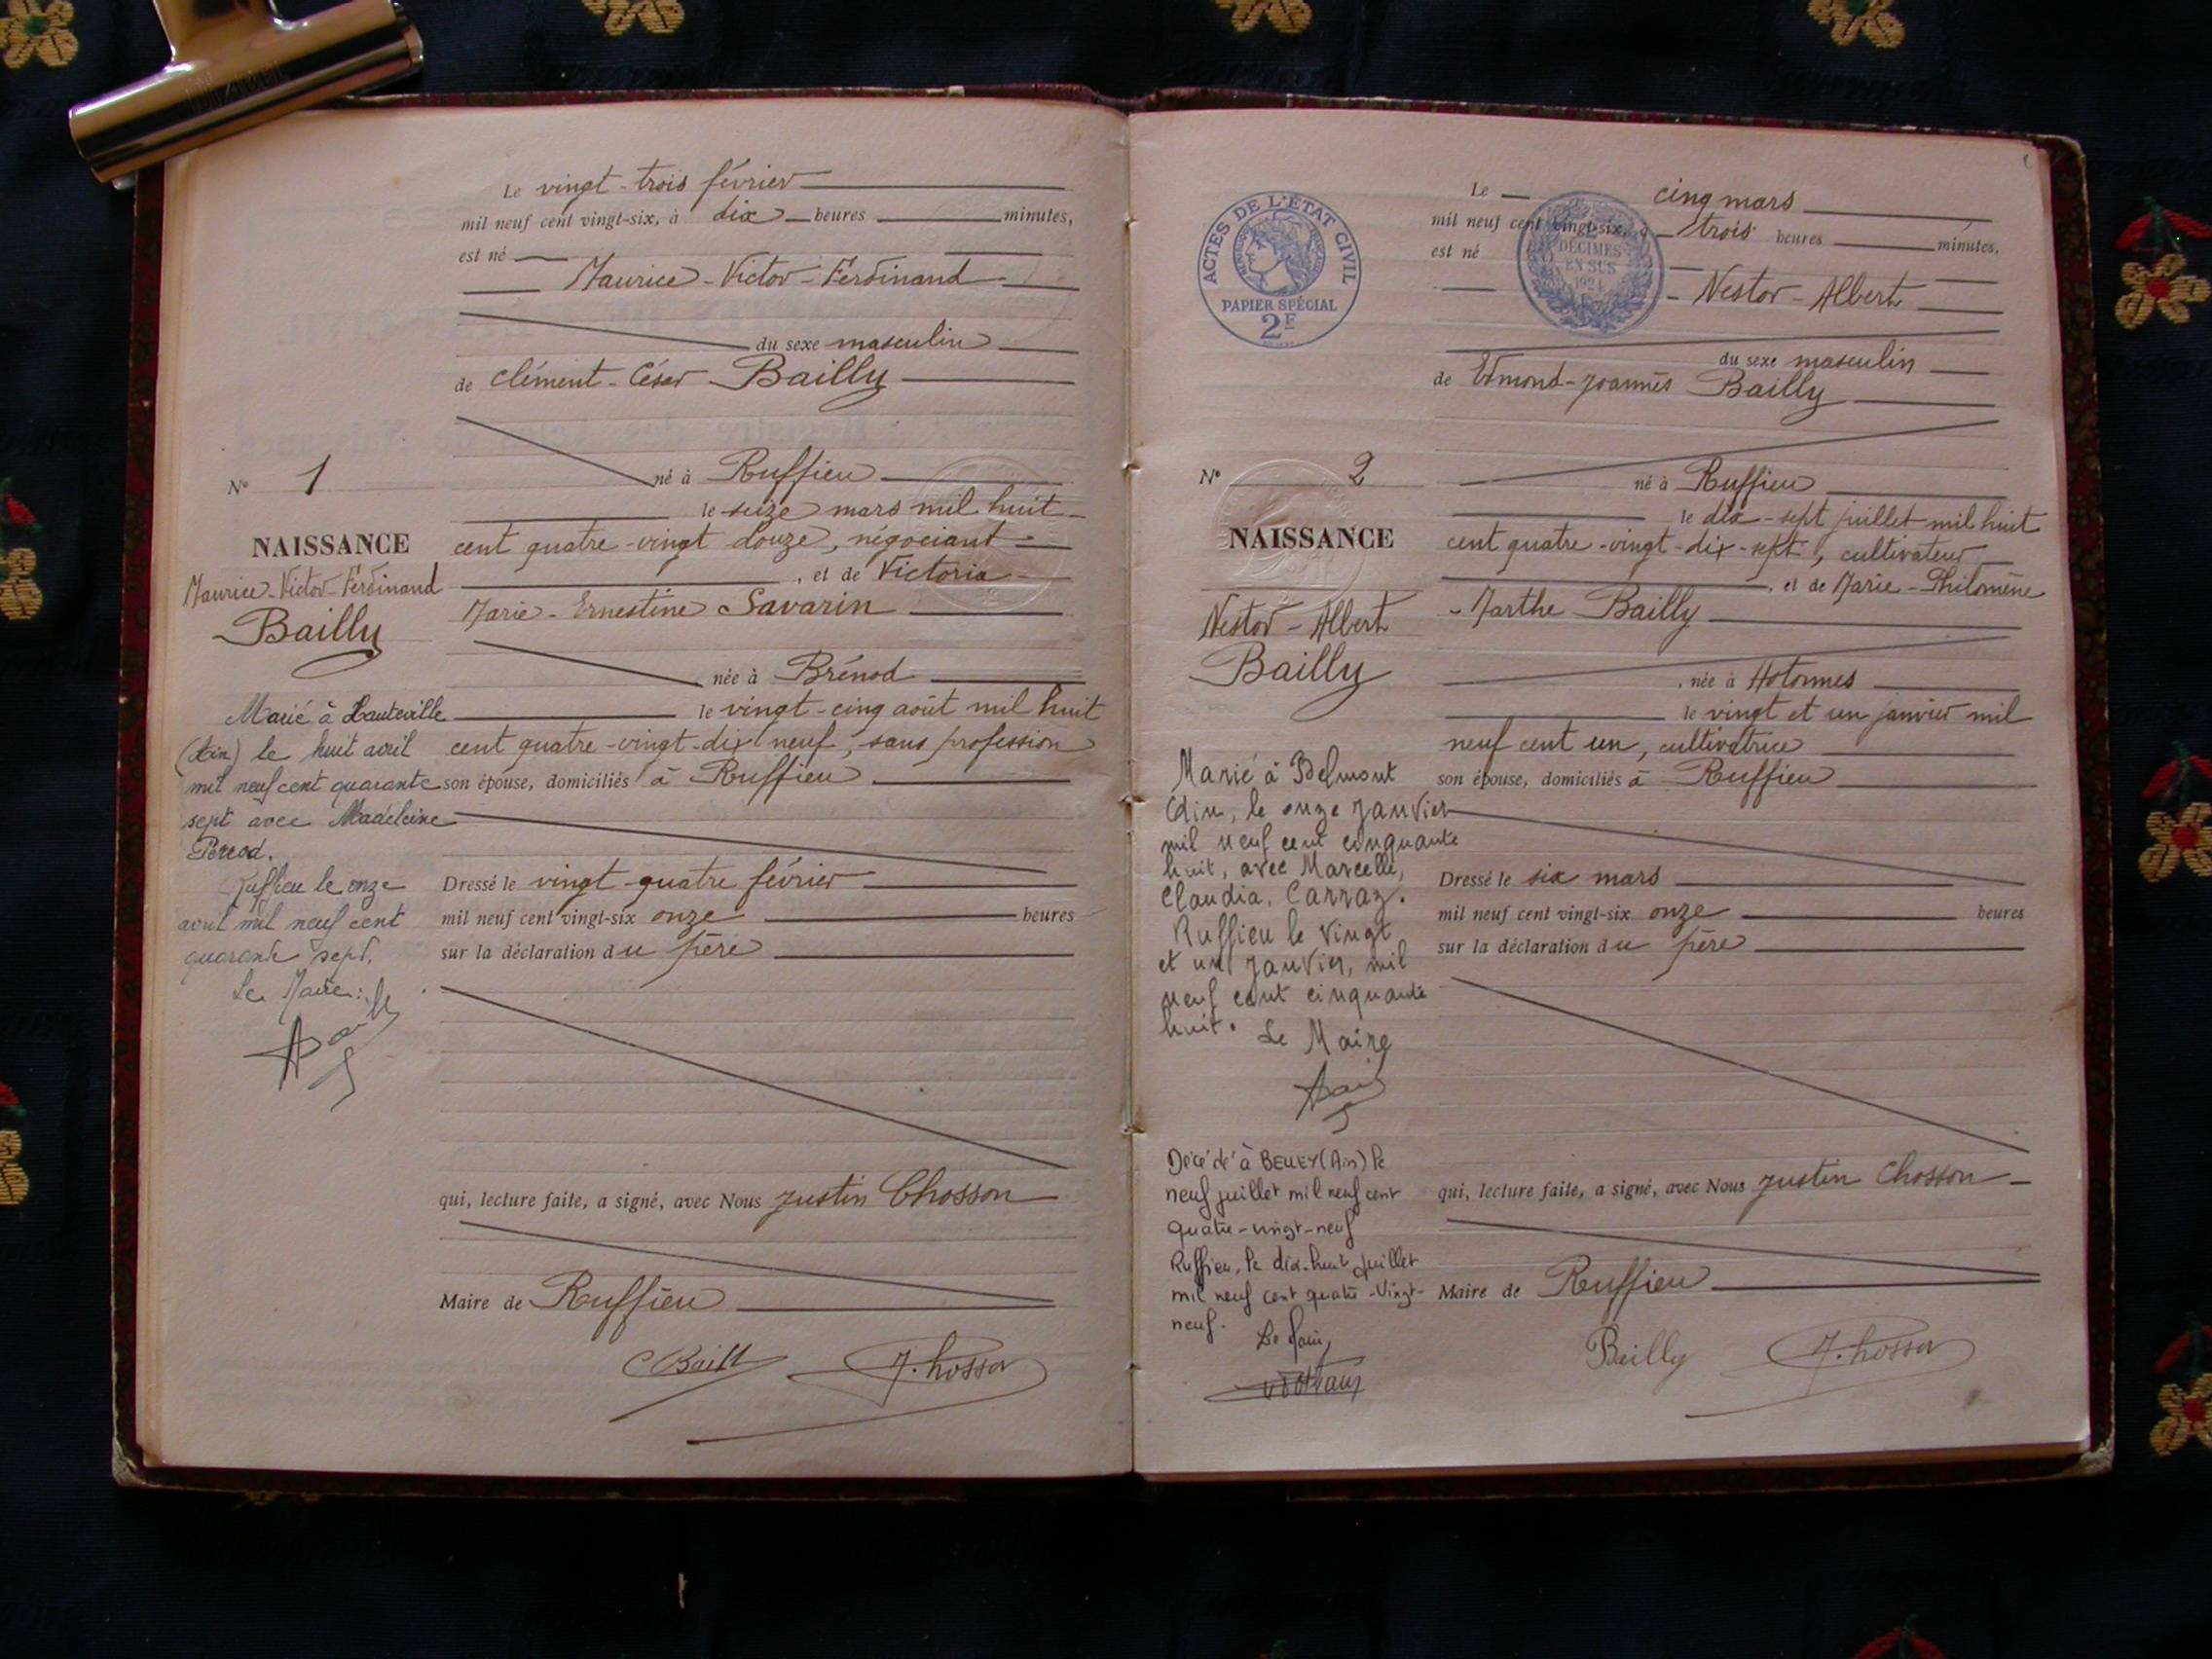 Le vingt-trois février
mil neuf cent vingt-six, à dix heures minutes,
est né
Maurice-Victor-Ferdinand
du sexe masculin
de Clément-César Bailly
né à Ruffieu
N° 1
le seize mars mil huit
NAISSANCE
cent quatre-vingt douze, négociant
, et de Victoria
Maurice-Victor-Ferdinand
Marie-Ernestine Savarin
Bailly
née à Brénod
le vingt-cinq août mil huit
cent quatre-vingt-dix neuf, sans profession
son épouse, domiciliés à Ruffieu
Marié à Hauteville
(Ain) le huit avril
mil neuf cent quarante
sept avec Madeleine
Perrod.
Ruffieu le onze
avril mil neuf cent
quarante sept.
Le Maire:
Dressé le vingt-quatre février
mil neuf cent vingt-six onze heures
sur la déclaration du père
qui, lecture faite, a signé, avec Nous Justin Chosson
Maire de Ruffieu
C Bailly J. Chosson
ACTES DE L'ÉTAT CIVIL
PAPIER SPÉCIAL
2F
DÉCIMES
EN SUS
1924
Le cinq mars
mil neuf cent vingt-six, à trois heures minutes,
est né
Nestor-Albert
du sexe masculin
de Edmond-Joannès Bailly
né à Ruffieu
N° 2
le dix-sept juillet mil huit
NAISSANCE
cent quatre-vingt-dix-sept, cultivateur
, et de Marie-Philomène
Nestor-Albert
-Marthe Bailly
Bailly
, née à Hotonnes
le vingt et un janvier mil
neuf cent un, cultivatrice
son épouse, domiciliés à Ruffieu
Marié à Belmont
Ain, le onze Janvier
mil neuf cent cinquante
huit, avec Marcelle,
Claudia, Carraz.
Ruffieu le vingt
et un Janvier, mil
neuf cent cinquante
huit. Le Maire
Dressé le six mars
mil neuf cent vingt-six onze heures
sur la déclaration du père
Décédé à BELLEY (Ain) le
neuf juillet mil neuf cent
quatre-vingt-neuf
Ruffieu, le dix-huit juillet
mil neuf cent quatre-vingt-
neuf.
Le Maire
qui, lecture faite, a signé, avec Nous Justin Chosson
Maire de Ruffieu
Bailly J. Chosson